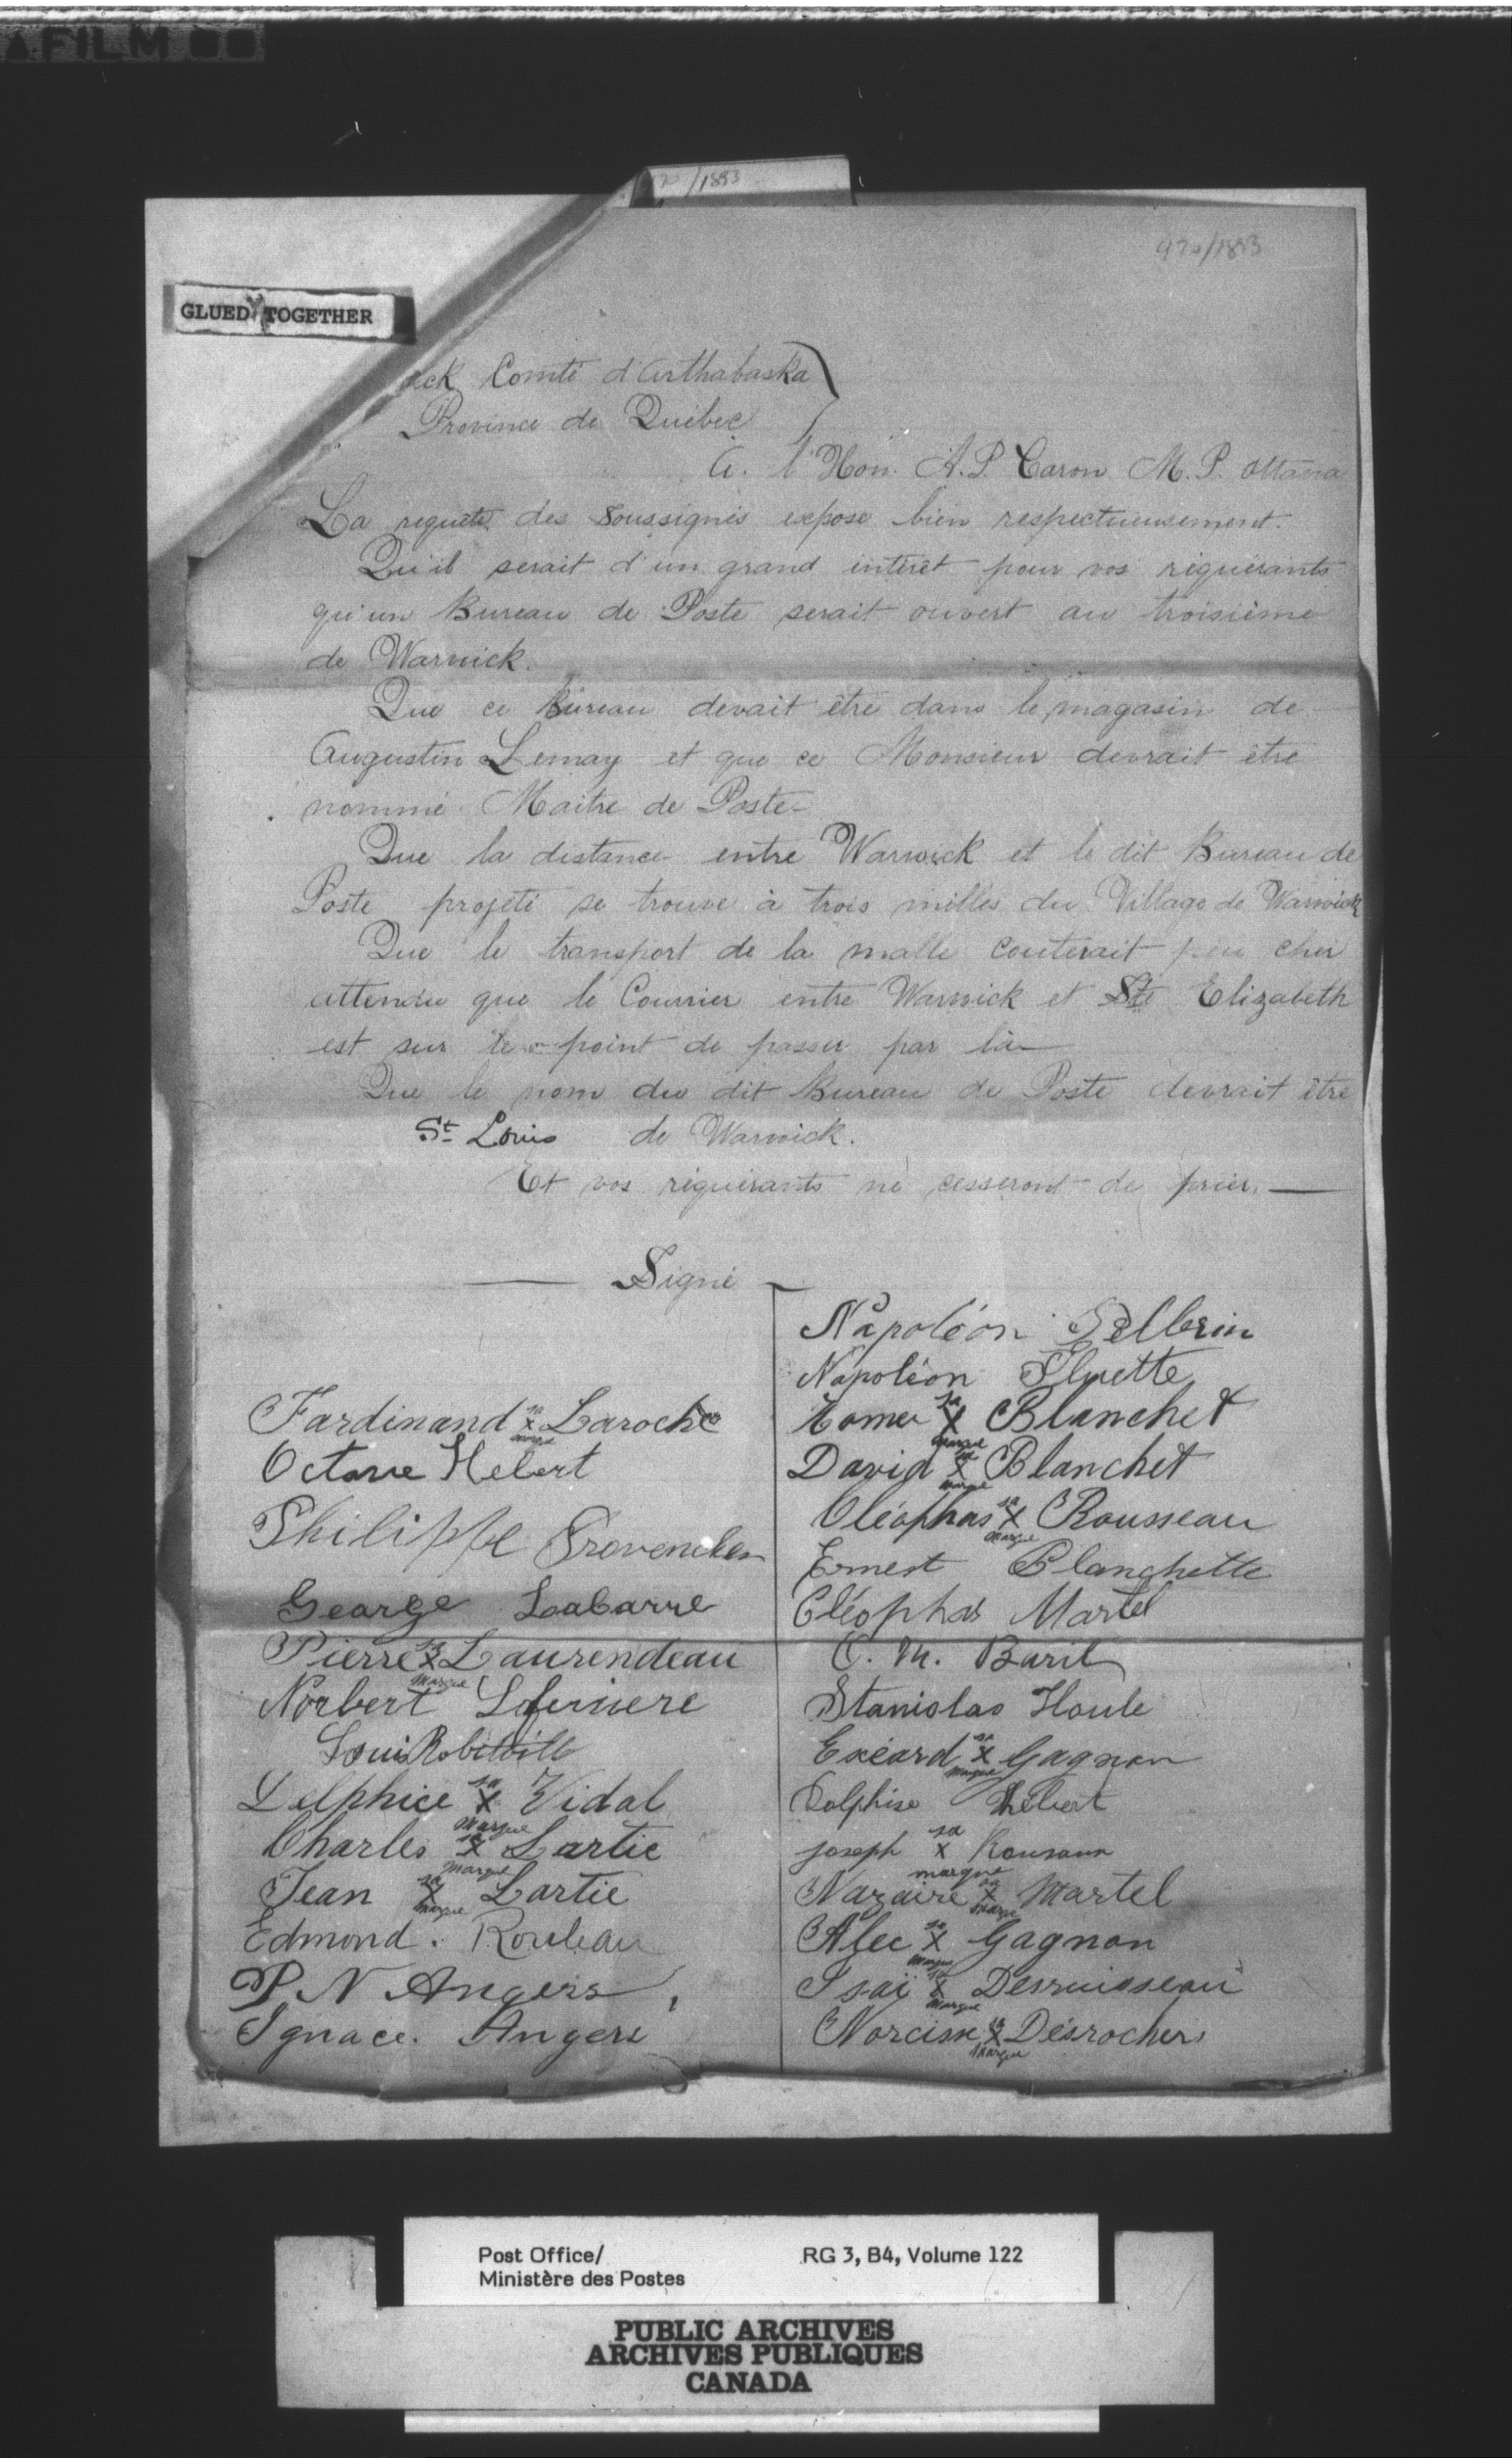 FILM
/1893
970/1893
GLUED TOGETHER
ick Comté d'Arthabaska
Province de Québec
A. l'Hon. A.P. Caron M.P. Ottawa
La requête des Soussignés expose bien respectueusement.
Qu'il serait d'un grand intérêt pour vos réquérants
qu'un Bureau de Poste serait ouvert au troisième
de Warwick.
Que ce Bureau devait être dans le magasin de
Augustin Lemay et que ce Monsieur devrait être
nommé Maitre de Poste
Que la distance entre Warwick et le dit Bureau de
Poste projeté se trouve à trois milles du Village de Warwick
Que le transport de la malle couterait peu cher
attendu que le Courrier entre Warwick et Ste Elizabeth
est sur le point de passer par là
Que le nom du dit Bureau de Poste devrait être
St Louis de Warwick.
Et vos réquérants ne cesseront de prier.
Signé
Fardinand sa X marque Laroche
Octave Hebert
Philippe Provencher
George Labarre
Pierre sa X marque Laurendeau
Norbert Laferriere
Louis Robitaille
Delphice sa X marque Vidal
Charles sa X marque Lartie
Jean sa X marque Lartie
Edmond. Rouleau
P N Angers
Ignace. Angers
Napoléon Pellerin
Napoléon Pluette
Homer sa X marque Blanchet
David sa X marque Blanchet
Cléophas sa X marque Rousseau
Ernest Blanchette
Cléophas Martel
O. M. Baril
Stanislas Houle
Exéard sa X marque Gagnon
Dolphise Hébert
joseph sa X marque Rousseau
Nazaire sa X marque Martel
Alec sa X marque Gagnon
Isaï sa X marque Desruisseau
Narcisse sa X marque Desrochers
Post Office/
Ministère des Postes
RG 3, B4, Volume 122
PUBLIC ARCHIVES
ARCHIVES PUBLIQUES
CANADA